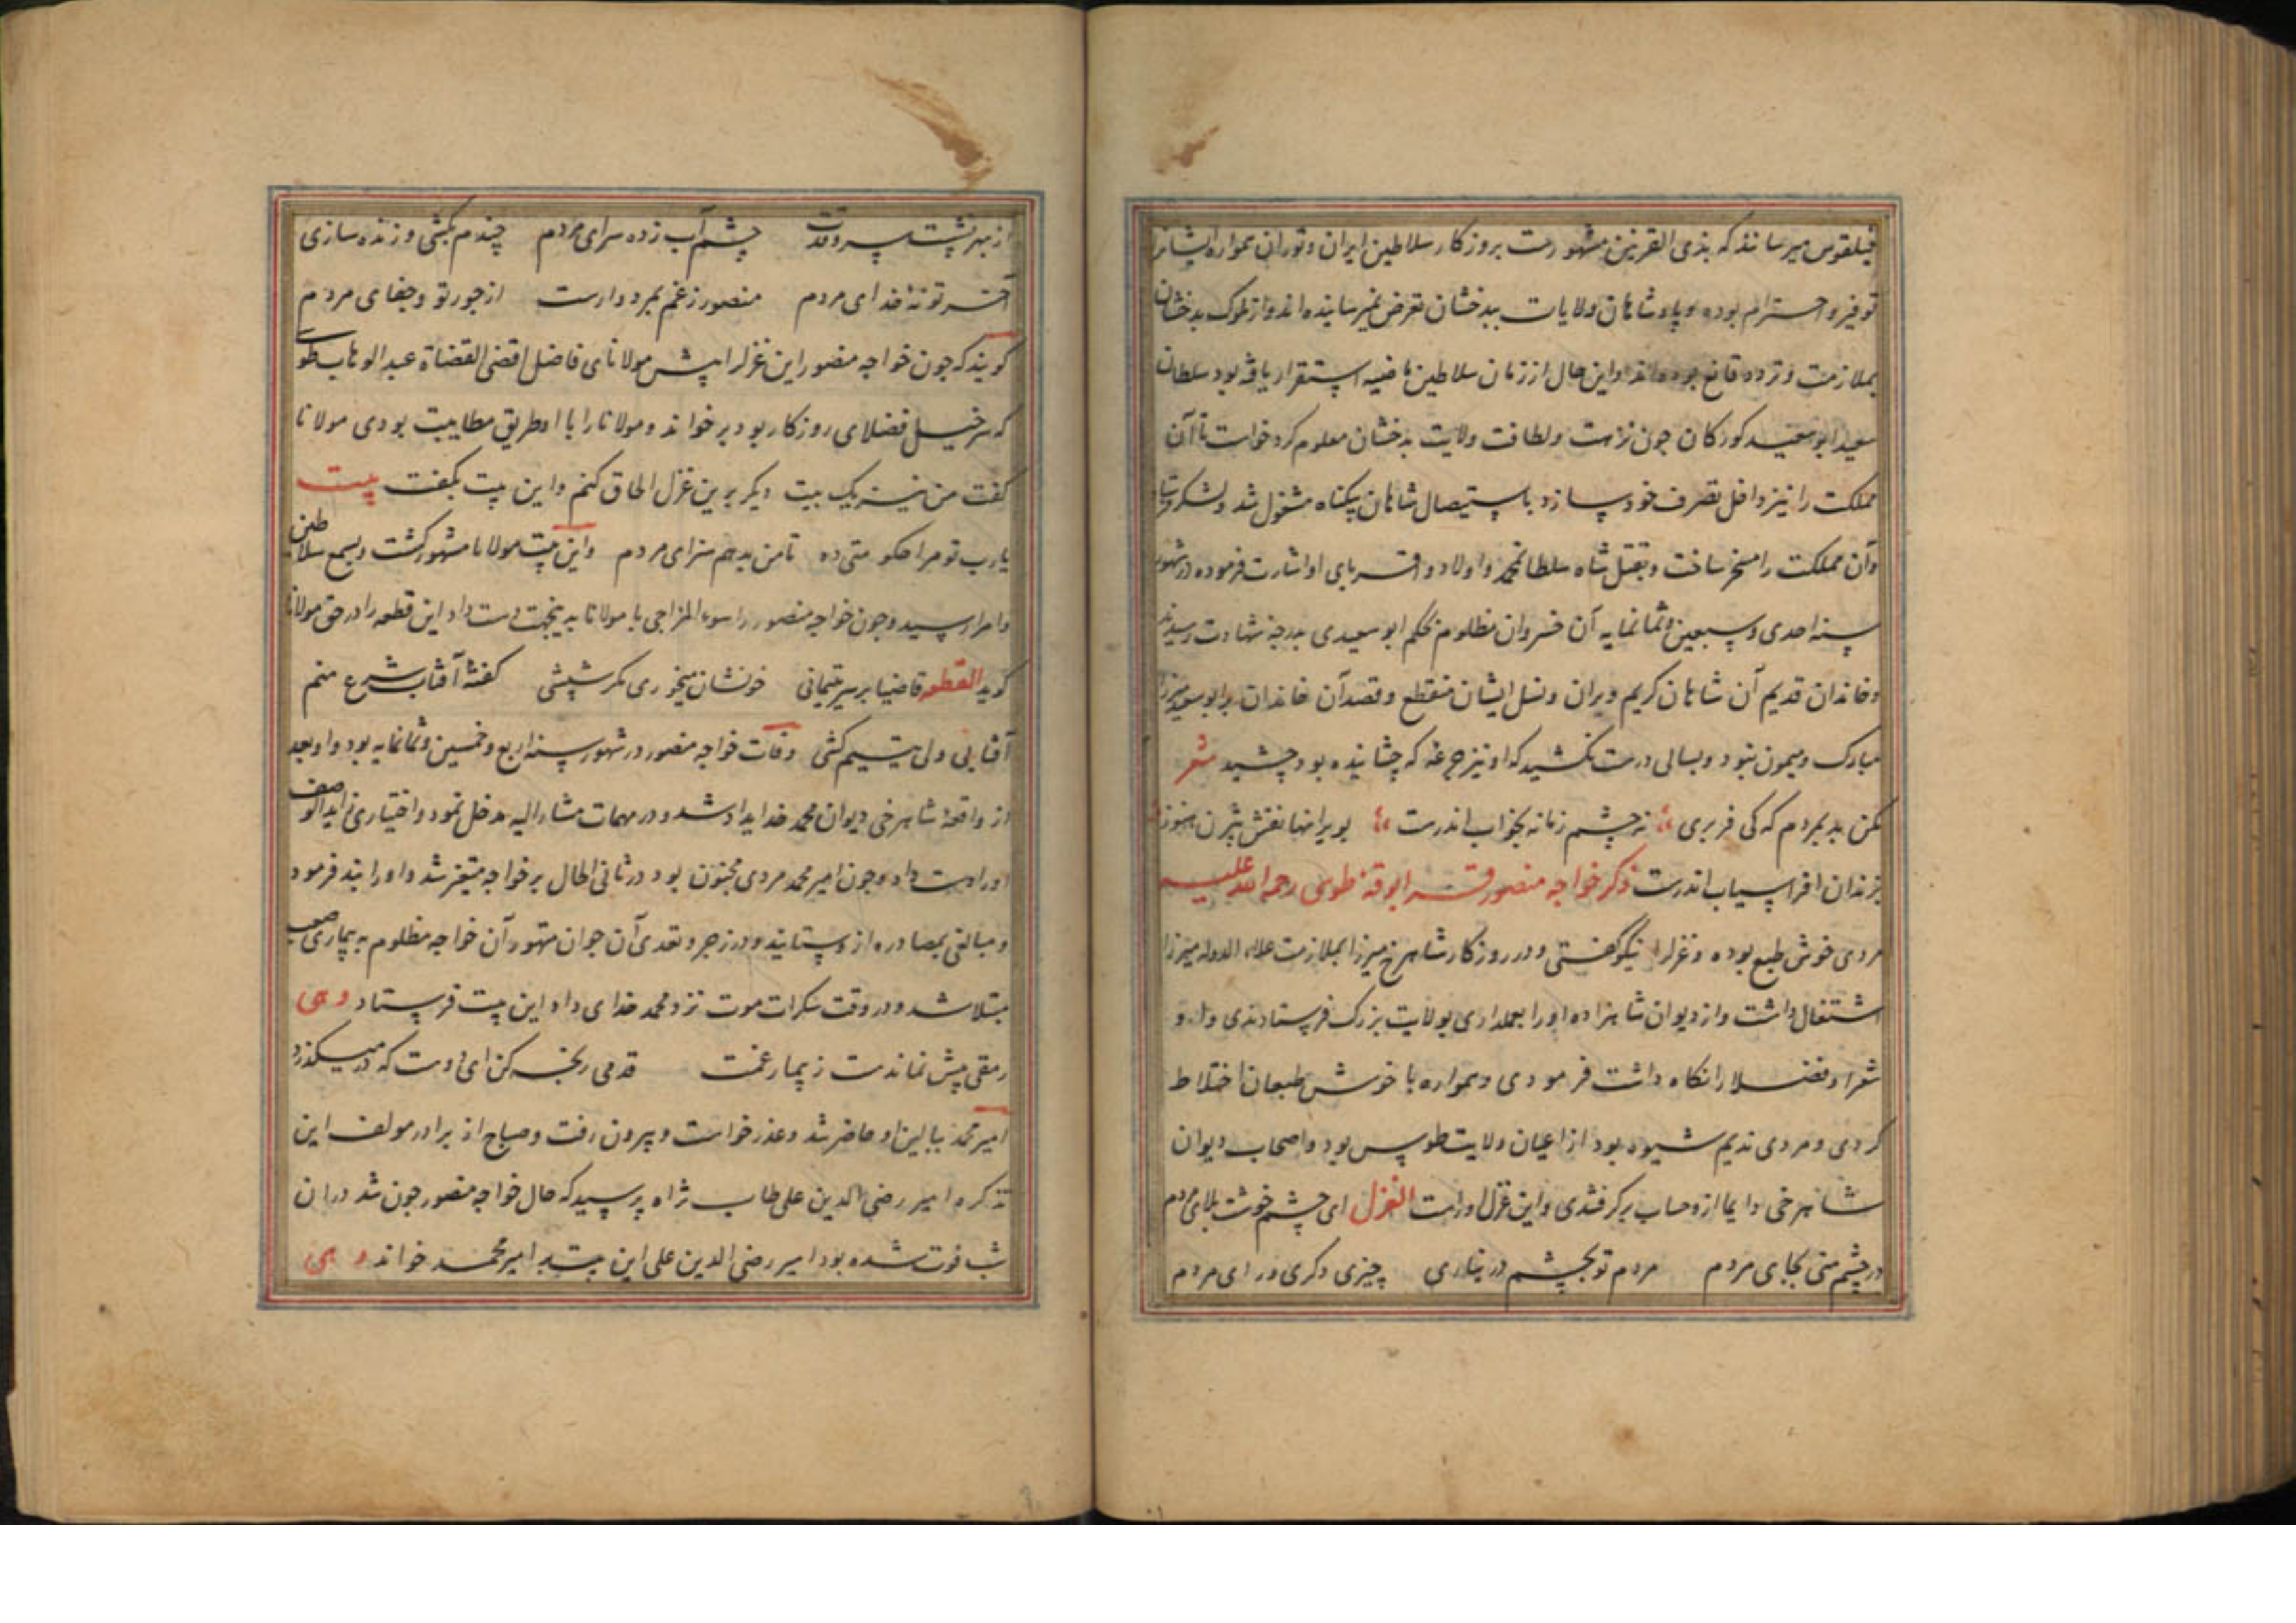 فیلقوس میرسانند که بذی القرنین مشهورست بروزکار سلاطین ایران وتوران همواره ایشانرا
توقیر و احترام بوده و پادشاهان ولایات ببدخشان تعرض نمیرسانیده‌اند و از ملوک بدخشان
بملازمت و تردد قانع بوده‌اند و این حال از زمان سلاطین ماضیه استقرار یافته بود سلطان
سعید ابو سعید کورکان جون نزهت ولطافت ولایت بدخشان معلوم کرد خواست تا آن
مملکت را نیز داخل تصرف خود سازد باستیصال شاهان بیکناه مشغول شد ولشکر
وآن مملکت را مسخر ساخت و بقتل شاه سلطانمحمد واولاد و اقربای او اشارت فرموده در شهور
سنه احدی وسبعین وثمانمایه آن خسروان مظلوم بحکم ابو سعیدی بدرجه شهادت رسیدند
وخاندان قدیم آن شاهان کریم ویران ونسل ایشان منقطع وقصد آن خاندان برابو سعید میرزا
مبارک ومیمون نبود وبسالی درست نکشید که او نیز جرعه که چشانیده بود چشید شعر
مکن بد بمردم که کی فر بری نه چشم زمانه بخواب اندرست بر ایوانها نقش بیژن هنوز
بزندان افراسیاب اندرست ذکر خواجه منصور قرابوقه طوسی رحمه الله علیه
مردی خوش طبع بوده وغزلرا نیکو کفتی و در روزکار شاهرخ میرزا بملازمت علاء الدوله میرزا
اشتغال داشت و از دیوان شاهزاده اورا بعملداری بولایت بزرک فرستادندی و او
شعرا وفضلا را نکاه داشت فرمودی وهمواره با خوش طبعان اختلاط
کردی و مردی ندیم شیوه بود از اعیان ولایت طوس بود واصحاب دیوان
شاهرخی دایما ازو حساب برکرفتندی واین غزل اوراست الغزل ای چشم خوشت بلای مردم
در چشم منی بجای مردم مردم تو بچشم در نیاری چیزی دکری ورای مردم
از بهر نشست سرو قدت چشم آب زده سرای مردم چندم بکشی و زنده سازی
آخر تو نه خدای مردم منصور زغم بمرد وارست از جور تو وجفای مردم
کویند که جون خواجه منصور این غزلرا پیش مولانای فاضل اقضی القضاة عبدالوهاب طوسی
که سرخیل فضلای روزکار بود برخواند ومولانا را با او طریق مطایبت بودی مولانا
کفت من نیز یک بیت دیکر برین غزل الحاق کنم واین بیت بکفت بیت
یارب تو مرا حکومتی ده تا من بدهم سزای مردم واین بیت مولانا مشهور کشت وبسمع سلاطین
وامرا رسید وجون خواجه منصور را سوء المزاجی با مولانا بدینجهت دست داد این قطعه را در حق مولانا
کوید القطعه قاضیا بر سر یتیمانی خونشان میخوری مکر شپشی کفتهٔ آفتاب شرع منم
آفتابی ولی یتیم کشی وفات خواجه منصور در شهور سنه اربع وخمسین وثمانمایه بود واو بعد
از واقعهٔ شاهرخی دیوان محمد خدایداد شد و در مهمات مشار الیه مدخل نمود واختیاری زاید الوصف
اورا دست داد وجون امیر محمد مردی مجنون بود در ثانی الحال بر خواجه متغیر شد واورا بند فرمود
ومبالغی بمصادره ازو بستانید و در زجر وتعدی آن جوان متهور آن خواجه مظلوم به بیماری صعب
مبتلا شد و در وقت سکرات موت نزد محمد خدای داد این بیت فرستاد و هی
رمقی بیش نماندست ز بیمار غمت قدمی رنجه کن ای دوست که در میکذرد
امیر محمد ببالین او حاضر شد وعذر خواست وبیرون رفت وصباح از برادر مولف این
تذکره امیر رضی الدین علی طاب ثراه پرسید که حال خواجه منصور جون شد در ان
شب فوت شده بود امیر رضی الدین علی این بیت بر امیر محمد خواند و هی